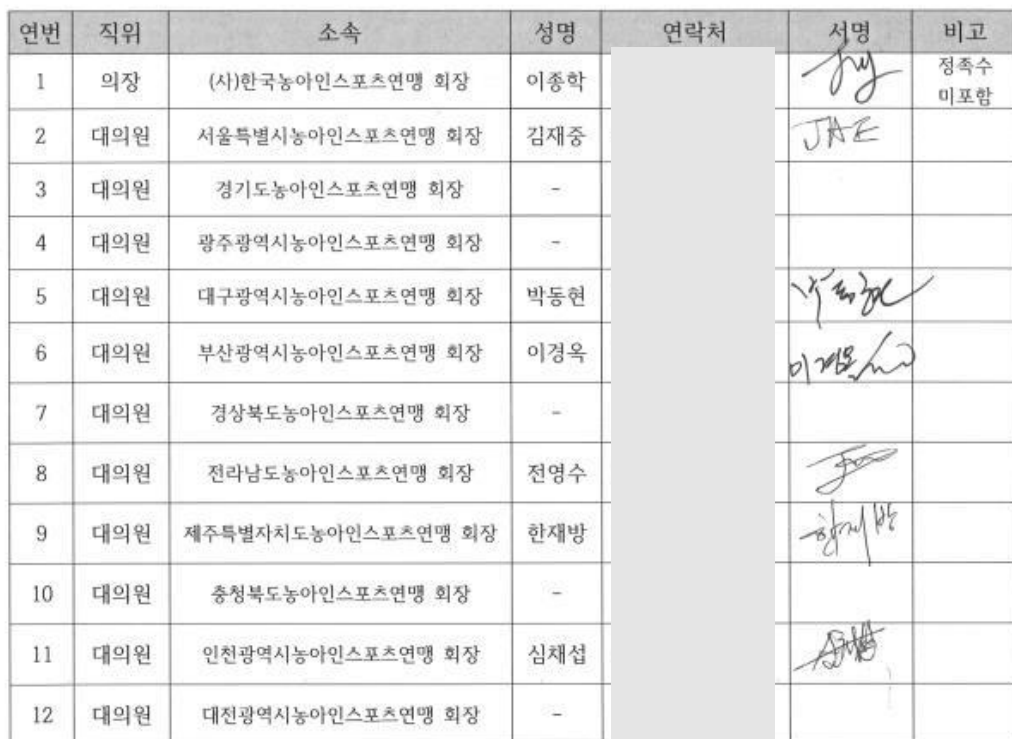 연번 직위 소속 성명 연락처 서명 비고
1 의장 (사)한국농아인스포츠연맹 회장 이종학 정족수
미포함
2 대의원 서울특별시농아인스포츠연맹 회장 김재중 JAE
3 대의원 경기도농아인스포츠연맹 회장 -
4 대의원 광주광역시농아인스포츠연맹 회장 -
5 대의원 대구광역시농아인스포츠연맹 회장 박동현
6 대의원 부산광역시농아인스포츠연맹 회장 이경옥 이경옥
7 대의원 경상북도농아인스포츠연맹 회장 -
8 대의원 전라남도농아인스포츠연맹 회장 전영수
9 대의원 제주특별자치도농아인스포츠연맹 회장 한재방 한재방
10 대의원 충청북도농아인스포츠연맹 회장 -
11 대의원 인천광역시농아인스포츠연맹 회장 심채섭
12 대의원 대전광역시농아인스포츠연맹 회장 -